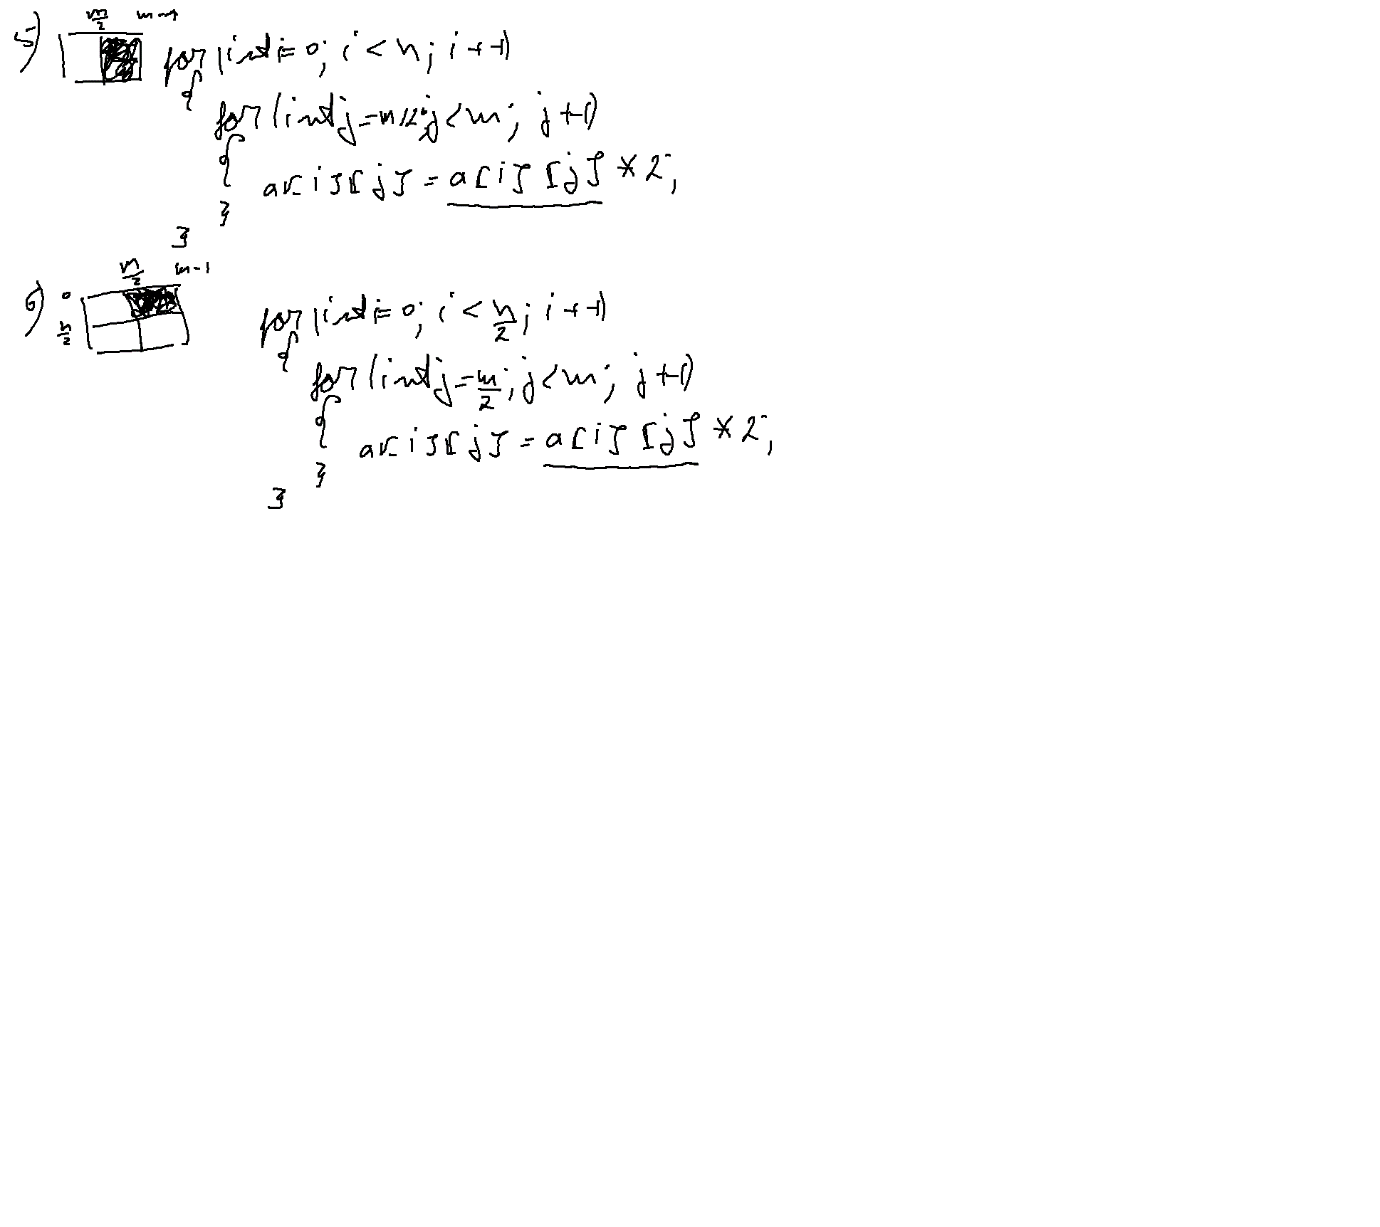 5) m/2 m-1
for (int i=0; i < n; i++)
{
for (int j=m/2; j<m; j++)
{
a[i][j] = a[i][j] * 2;
}
}
6) 0 m/2 m-1
n/2
for (int i=0; i < n/2; i++)
{
for (int j=m/2; j<m; j++)
{
a[i][j] = a[i][j] * 2;
}
}